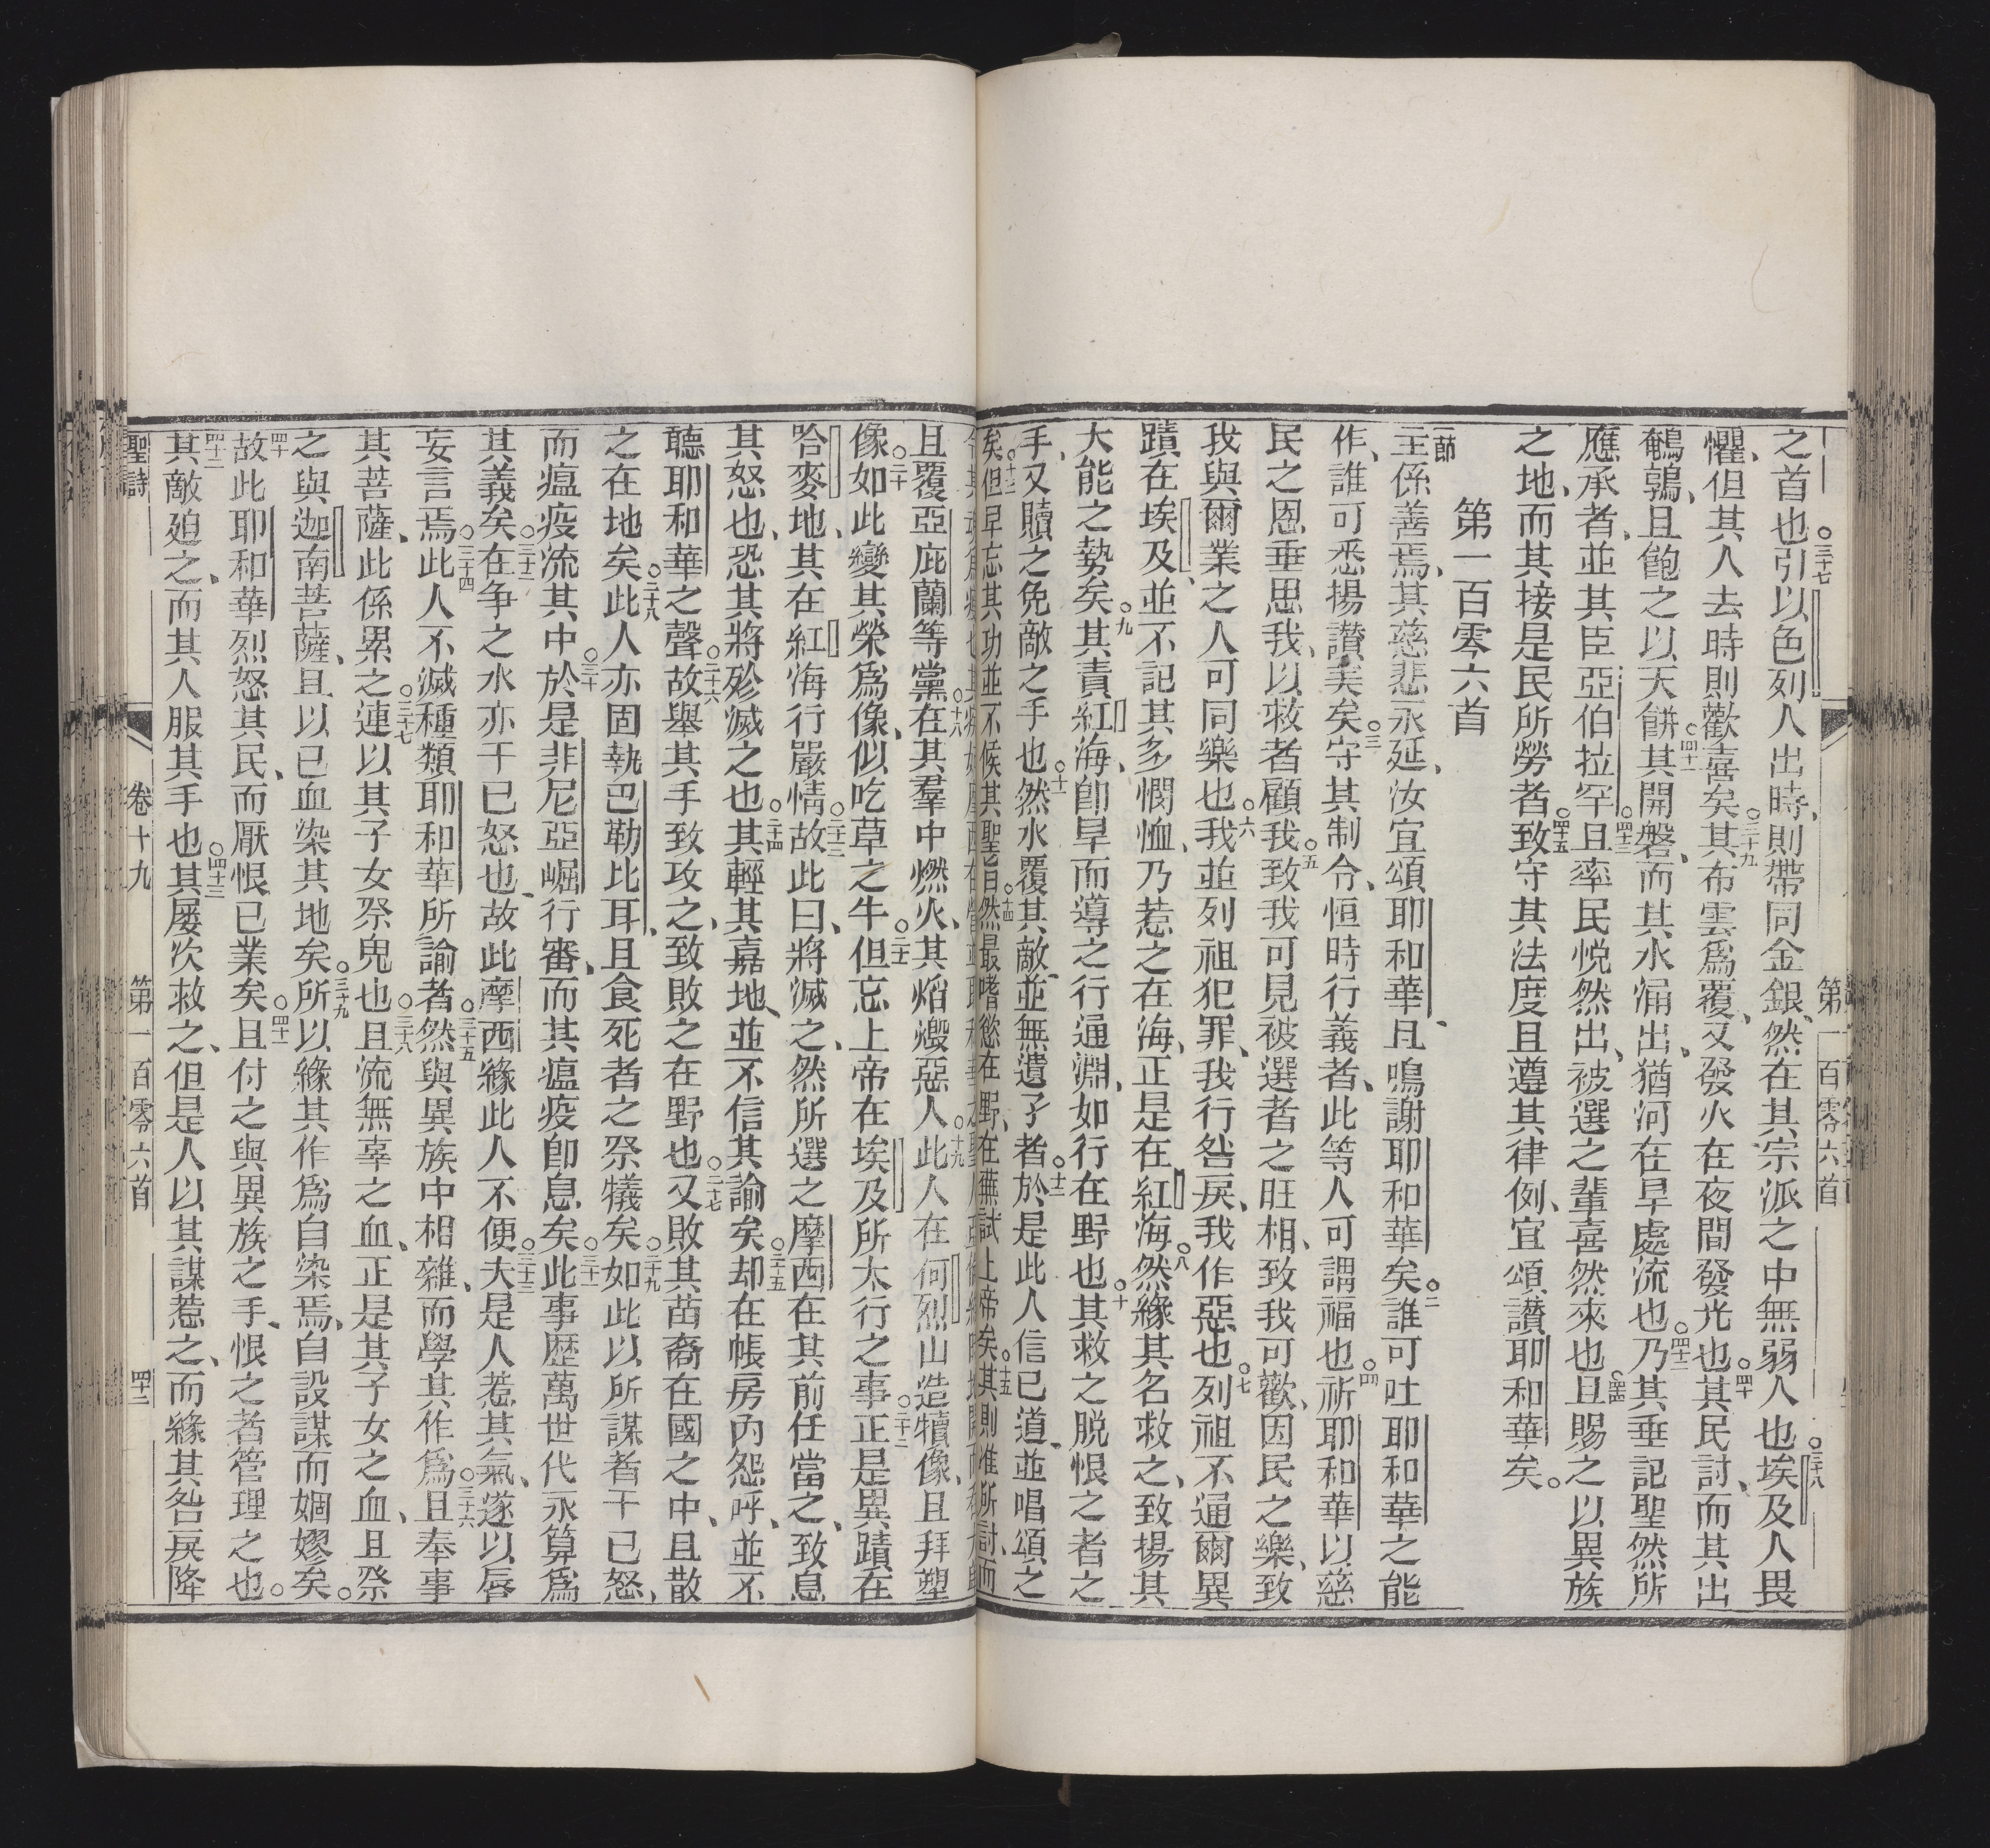 之首也○三十七引以色列人出時、則帶同金銀、然在其宗派之中無弱人也○三十八埃及人畏
懼、但其人去時則歡喜矣○三十九其布雲爲覆、又發火在夜間發光也○四十其民討、而其出
鵪鶉、且飽之以天餅○四十一其開磐、而其水涌出、猶河在旱處流也○四十二乃其垂記聖然所
應承者、並其臣亞伯拉罕○四十三且率民悅然出、被選之輩喜然來也○四十四且賜之以異族
之地、而其接是民所勞者○四十五致守其法度且遵其律例、宜頌讚耶和華矣。
第一百零六首
一節主係善焉、其慈悲永延、汝宜頌耶和華、且鳴謝耶和華矣○二誰可吐耶和華之能
作、誰可悉揚讚美矣○三守其制令、恒時行義者、此等人可謂福也○四祈耶和華以慈
民之恩垂思我、以救者顧我○五致我可見被選者之旺相、致我可歡、因民之樂、致
我與爾業之人可同樂也○六我並列祖犯罪、我行咎戾、我作惡也○七列祖不通爾異
蹟在埃及、並不記其多憫恤、乃惹之在海、正是在紅海○八然緣其名救之、致揚其
大能之勢矣○九其責紅海、卽旱而導之行通淵、如行在野也○十其救之脱恨之者之
手、又贖之免敵之手也○十一然水覆其敵、並無遺孑者○十二於是此人信已道、並唱頌之
矣○十三但早忘其功並不候其聖旨○十四然最嗜慾在野、在蕪試上帝矣○十五其則准所討、而
且覆亞庇蘭等黨○十八在其羣中燃火、其焰燬惡人○十九此人在何烈山造犢像、且拜塑
像○二十如此變其榮爲像、似吃草之牛○二十一但忘上帝在埃及所太行之事○二十二正是異蹟在
哈麥地、其在紅海行嚴情○二十三故此曰、將滅之、然所選之摩西在其前任當之、致息
其怒也、恐其將殄滅之也○二十四其輕其嘉地、並不信其諭矣○二十五却在帳房內怨呼、並不
聽耶和華之聲○二十六故舉其手致攻之、致敗之在野也○二十七又敗其苗裔在國之中、且散
之在地矣○二十八此人亦固執巴勒比耳、且食死者之祭犧矣○二十九如此以所謀者干已怒、
而瘟疫流其中○三十於是非尼亞崛行審、而其瘟疫卽息矣○三十一此事歷萬世代永算爲
其義矣○三十二在争之水亦干已怒也、故此摩西緣此人不便○三十三夫是人惹其氣、遂以唇
妄言焉○三十四此人不滅種類耶和華所諭者○三十五然與異族中相雜、而學其作爲○三十六且奉事
其菩薩、此係累之連○三十七以其子女祭鬼也○三十八且流無辜之血、正是其子女之血、且祭
之與迦南菩薩、且以已血染其地矣○三十九所以緣其作爲自染焉、自設謀而姻嫪矣。
四十故此耶和華烈怒其民、而厭恨已業矣○四十一且付之與異族之手、恨之者管理之也。
四十二其敵廹之、而其人服其手也○四十三其屢次救之、但是人以其謀惹之、而緣其咎戾降
聖詩　卷十九　第一百零六首　四十二